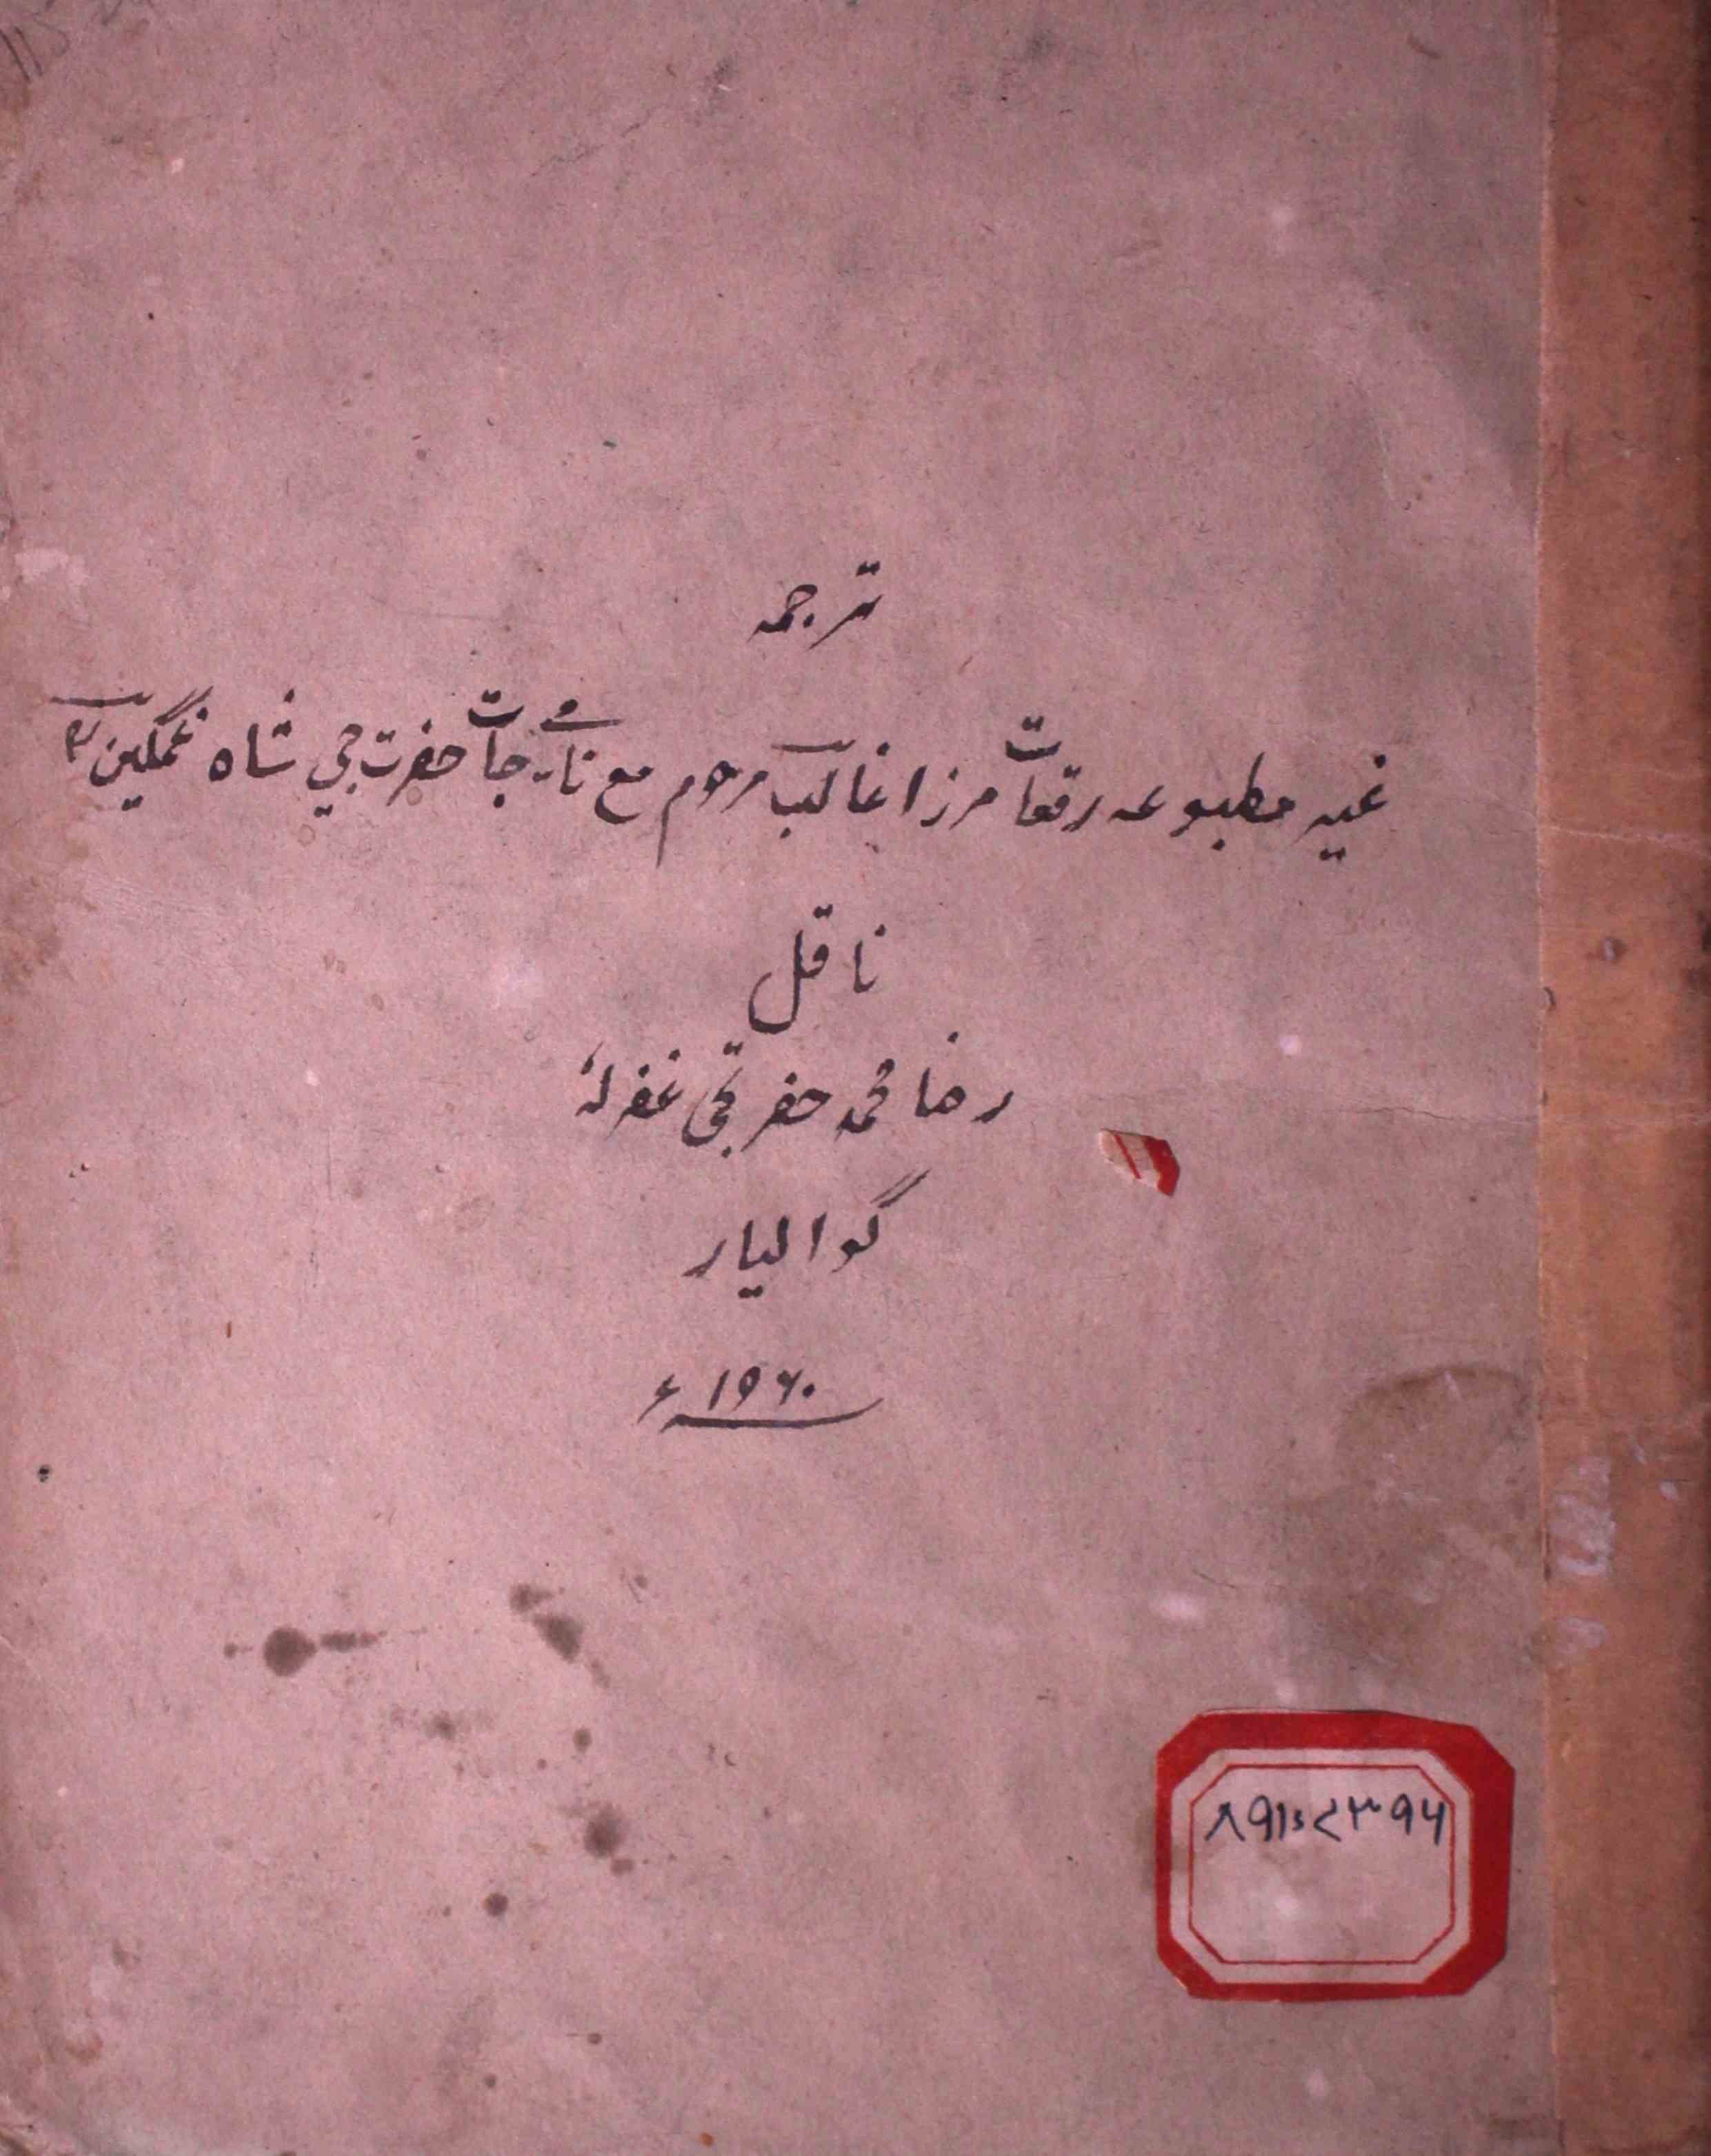 ترجمہ
غیر مطبوعہ رقعات مرزا غالب مرحوم مع نامہ جات حضرت جی شاہ غمگین
ناقل
رضا محمد حضرت جی غفرلہٗ
گوالیار
۱۹۶۰ء